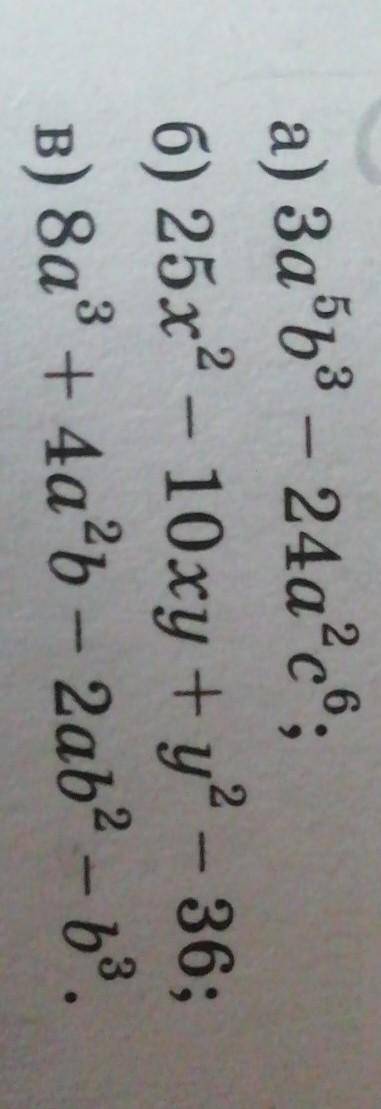 а) 3a⁵b³ − 24a²c⁶;
б) 25x² − 10xy + y² − 36;
в) 8a³ + 4a²b − 2ab² − b³.